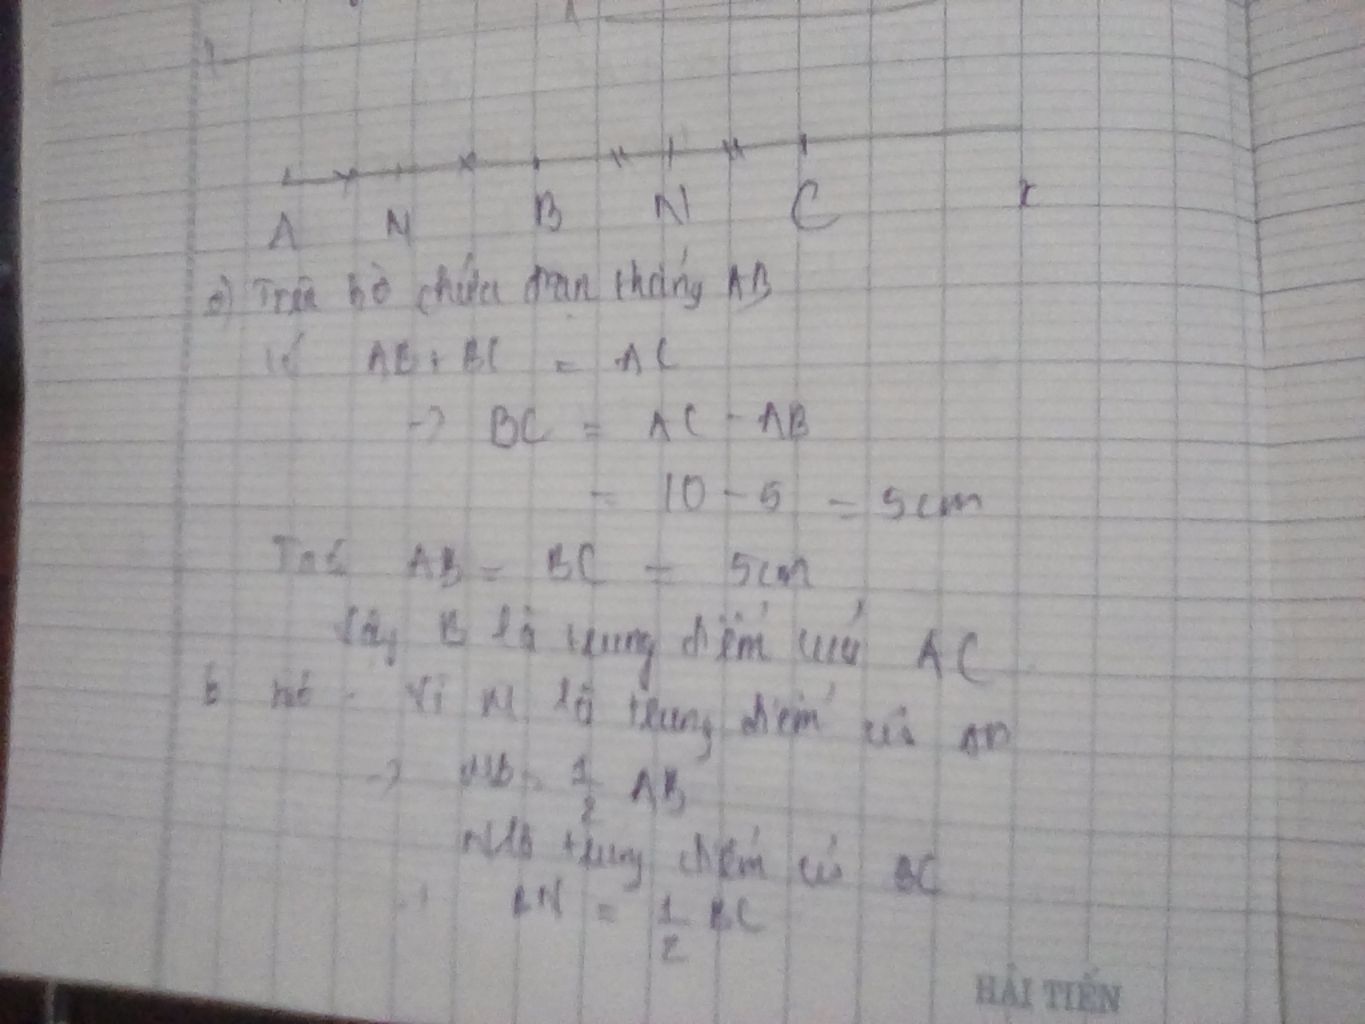 A N B N C x
a) Trên bờ chứa đoạn thẳng AB
có AB + BC = AC
-> BC = AC - AB
= 10 - 5 = 5cm
Ta có AB = BC = 5cm
Vậy B là trung điểm của AC
b Vì M là trung điểm của AB
-> MB = 1/2 AB
N là trung điểm của BC
-> BN = 1/2 BC
HẢI TIẾN